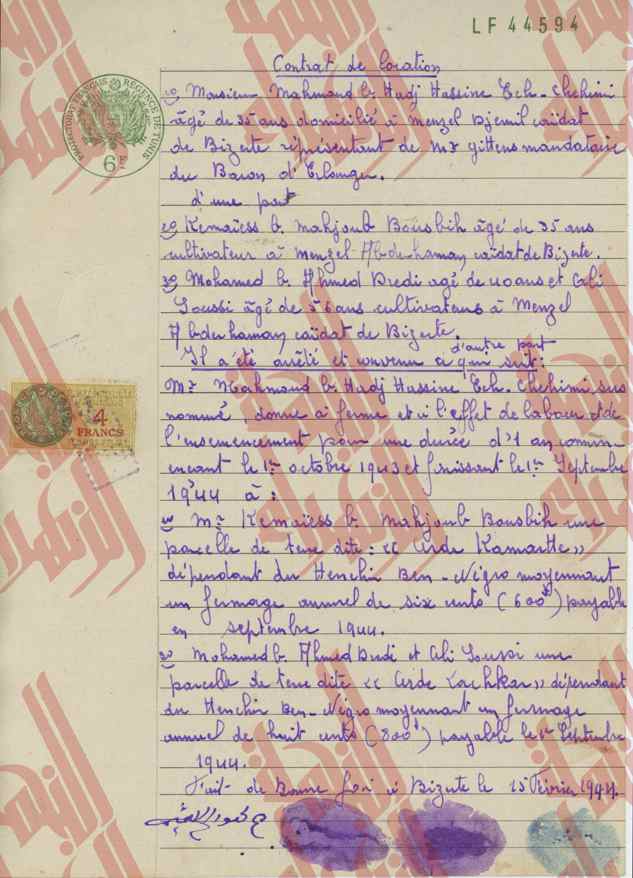 LF 44594
Contrat de location
PROTECTORAT FRANÇAIS RÉGENCE DE TUNIS
6
1º Monsieur Mahmoud b. Hadj Hassine Ech-Chehimi
âgé de 35 ans domicilié à Menzel Djemil caïdat
de Bizerte représentant de Mr gittens mandataire
du Baron d'Erlanger.
d'une part
2º Remaïess b. Mahjoub Bousbih âgé de 35 ans
cultivateur à Menzel Abderhaman caïdat de Bizerte.
3º Mohamed b. Ahmed Dredi agé de 40 ans et Ali
Soussi âgé de 56 ans cultivateurs à Menzel
Abderhaman caïdat de Bizerte.
d'autre part
Il a été arrêté et convenu ce qui suit:
Mr Mahmoud b. Hadj Hassine Ech-Chehimi, sus
nommé, donne à ferme et à l'effet de labour et de
l'ensemencement pour une durée d'1 an commen-
encant le 1er octobre 1943 et finissant le 1er Septembre
1944 à :
4
FRANCS
Mr Remaïess b. Mahjoub Bousbih une
parcelle de terre dite : « Cerde Kamartte »
dépendant du Henchir Ben-Négro moyennant
un fermage annuel de six cents (600f) payable
en septembre 1944.
Mohamed b. Ahmed Dredi et Ali Soussi une
parcelle de terre dite « Cerde Kachkar » dépendant
du Henchir Ben-Négro moyennant un fermage
annuel de huit cents (800f) payable le 1er Septembre
1944.
Fait de Bonne foi à Bizerte le 15 Février 1944.